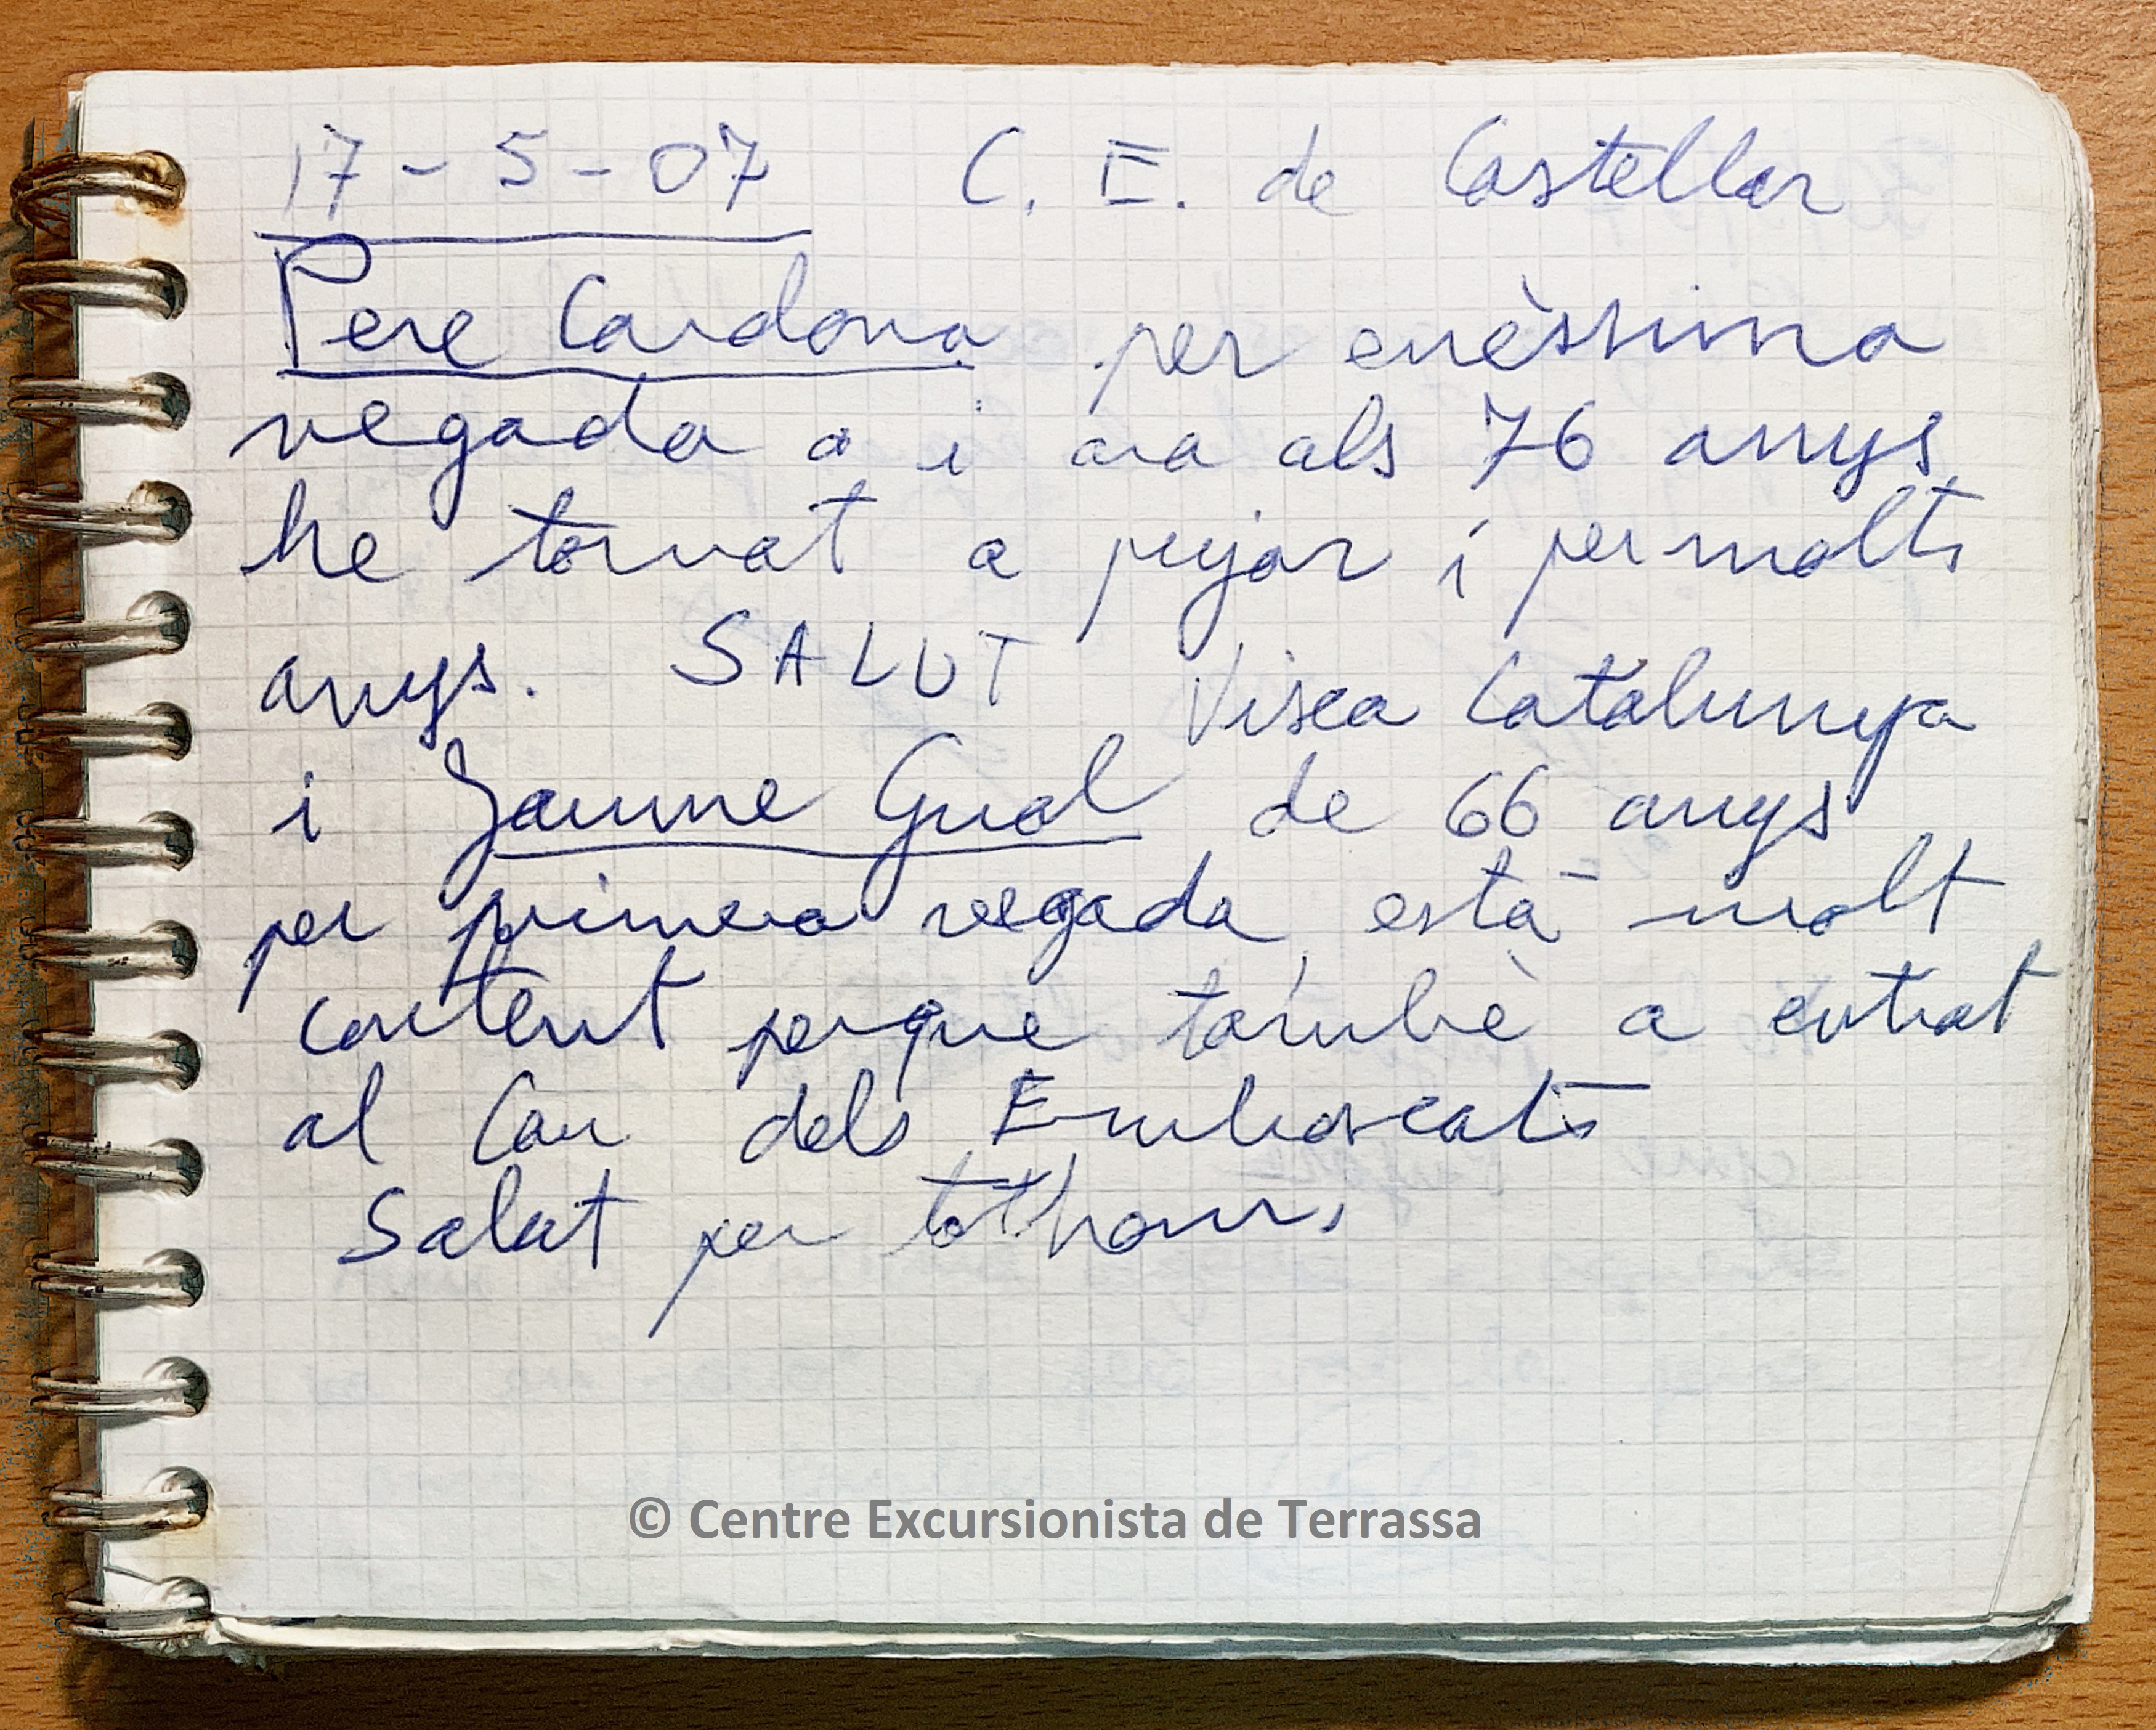 17 - 5 - 07 C. E. de Castellar
Pere Cardona per enèssima
vegada a i ara als 76 anys
he tornat a pujar i per molts
anys. SALUT Visca Catalunya
i Jaume Gual de 66 anys
per primera vegada, està molt
content perque també a entrat
al Cau dels Emboscats
Salut per tothom,
© Centre Excursionista de Terrassa